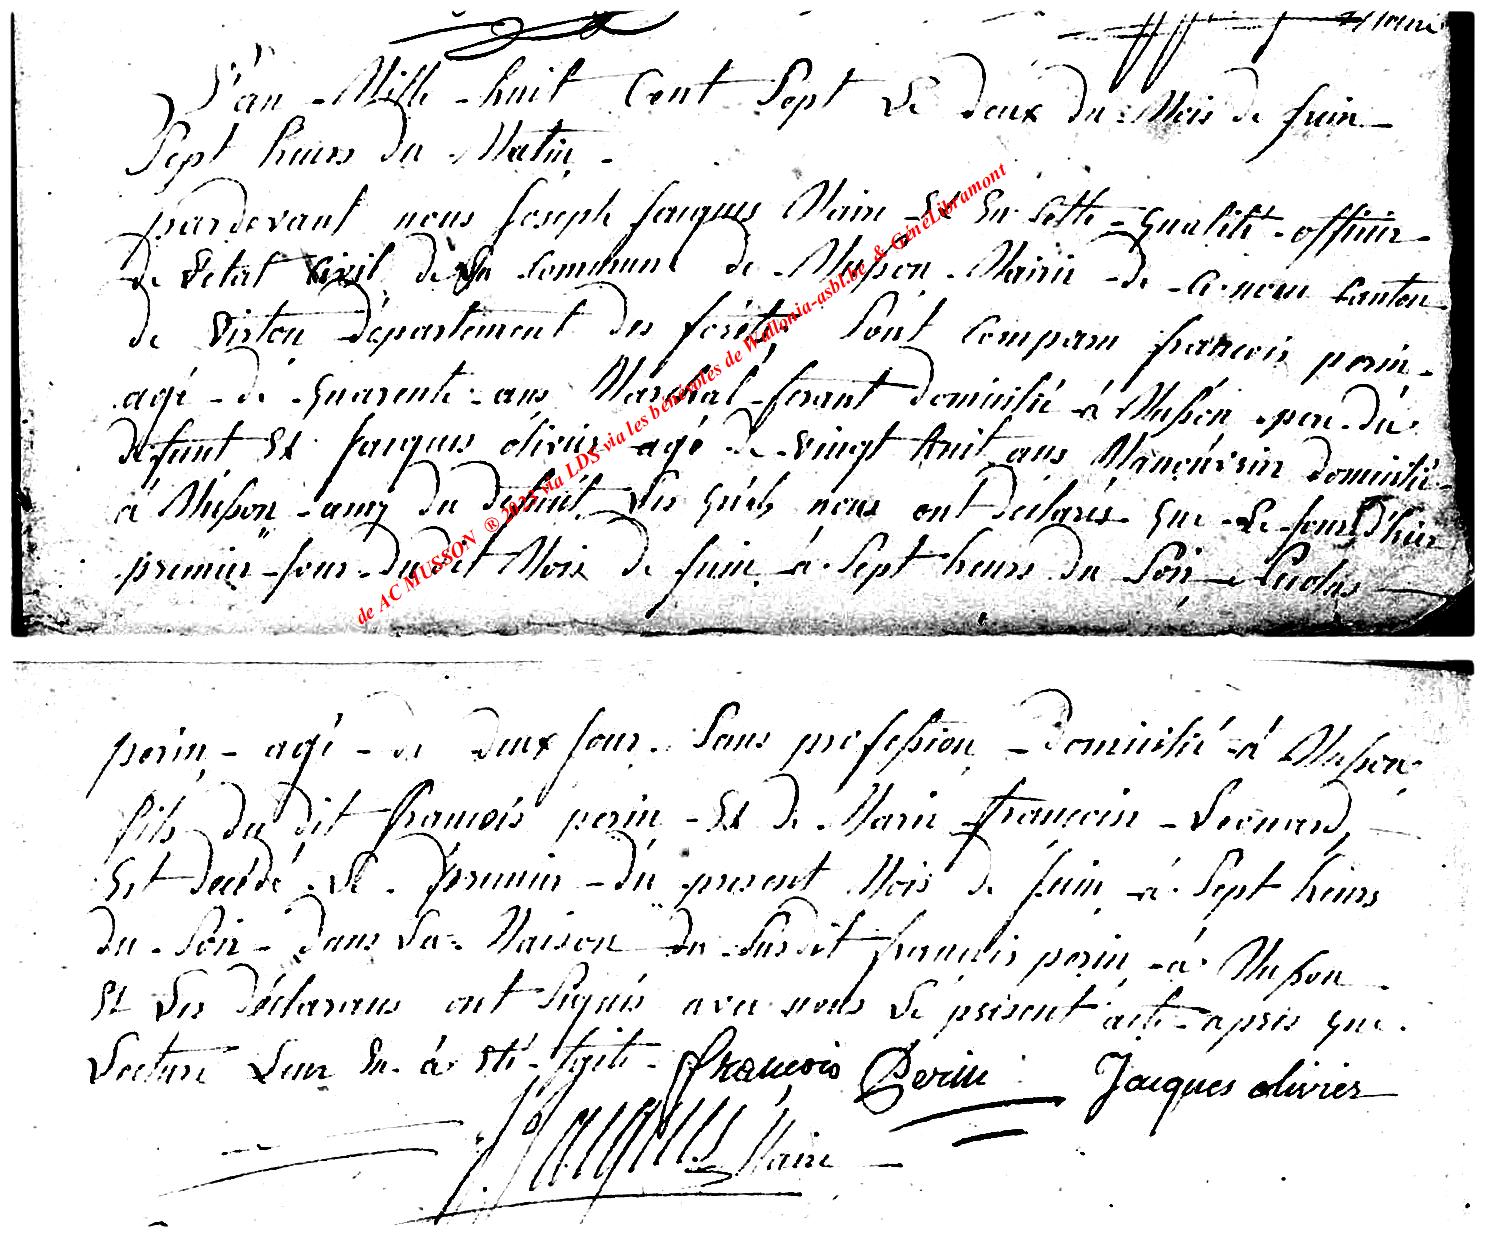 Maire
L'an Mille huit Cent Sept Le deux du Mois de Juin
Sept heures du Matin
pardevant nous Joseph Jacques Maire Et En Cette Qualité officier
de L'etat Civil de La Commune de Musson Mairie de Ce nom Canton
de Virton département des forêts, Sont Comparu francois perin
agé de Quarente ans Marchal ferant domicilié à Musson pere du
defunt Et Jacques ölivier agé de vingt huit ans Manoúvrier domicilié
à Musson amy du defunt Les Quels nous ont déclarés Que Le Jour D'hier
premier Jour du dit Mois de Juin à Sept heures du Soir Nicolas
de AC MUSSON ® 2025 via LDS via les bénévoles de Wallonia-asbl.be & GénéLibramont
perin agé de deux Jour Sans profession domicilié à Musson
fils du dit francois perin Et de Marie françoise Leonard,
Est decédé Le premier du present Mois de Juin à Sept heures
du Soir dans La Maison du Susdit françois perin à Musson
Et Les déclarans ont Signés avec nous Le présent acte apres que
Lecture Leur En à été faite François Perin Jacques olivier
J. Jacques Maire